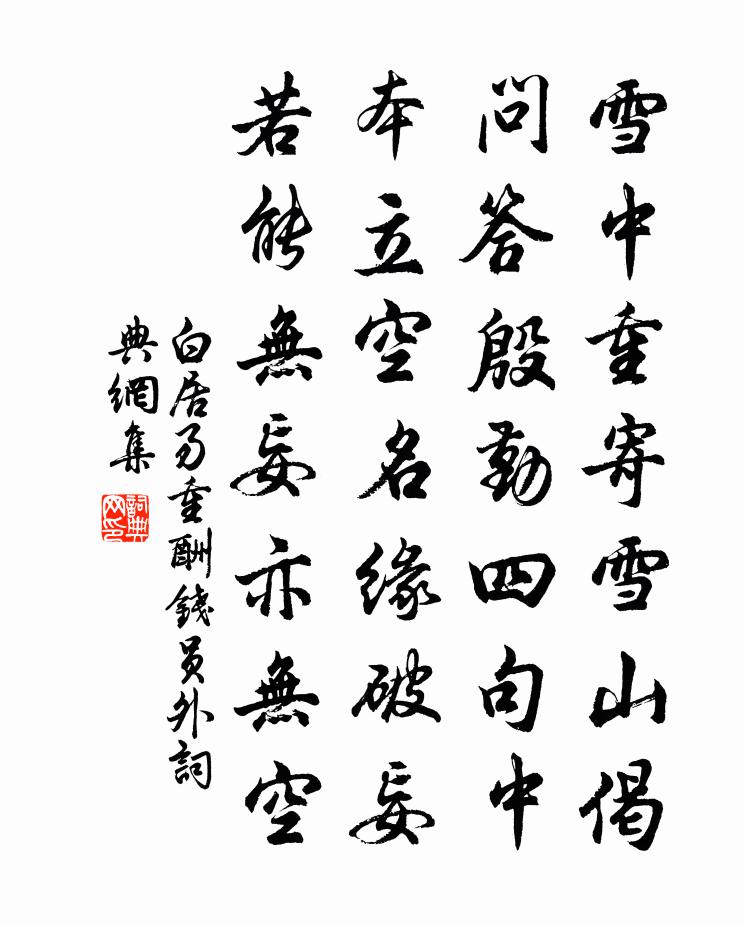 雪中重寄雪山偈
問答殷勤四句中
本立空名緣破妄
若能無妄亦無空
白居易重酬錢員外詞
典網集
詞典網印